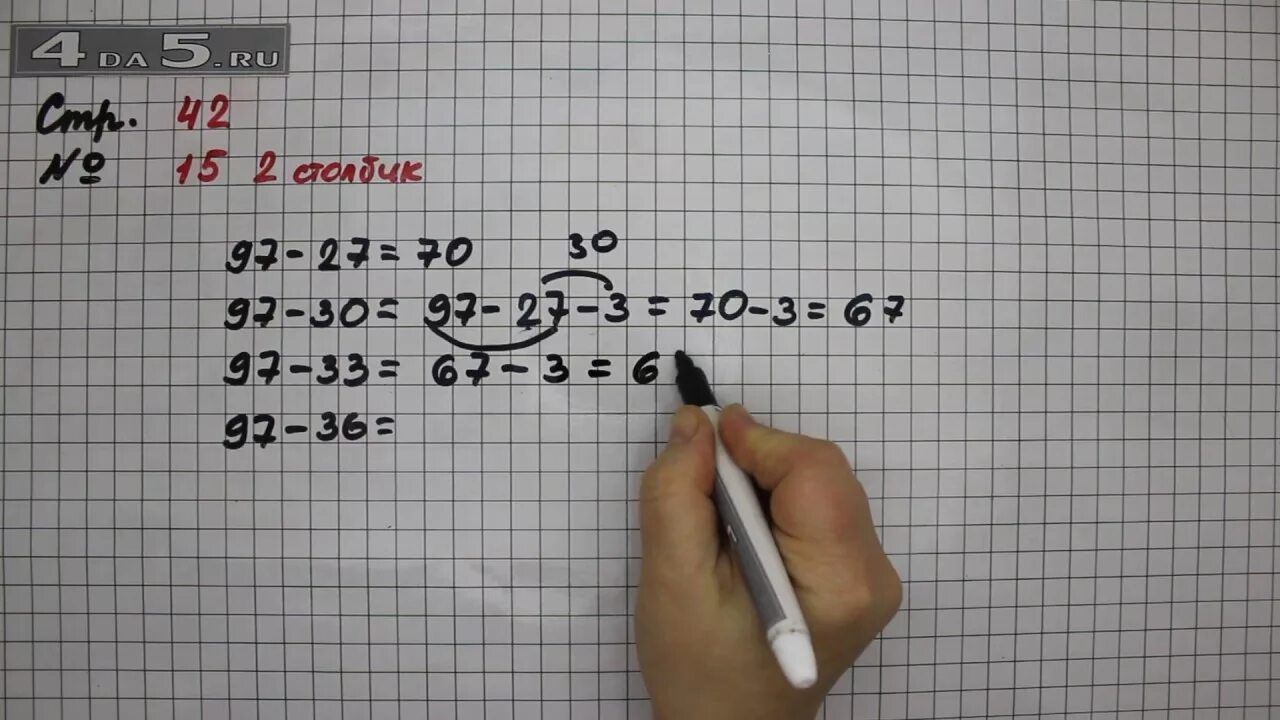 4DA5.RU
Стр. 42
№ 15 2 столбик
97-27=70
30
97-30= 97-27-3 = 70-3=67
97-33= 67-3=6
97-36=